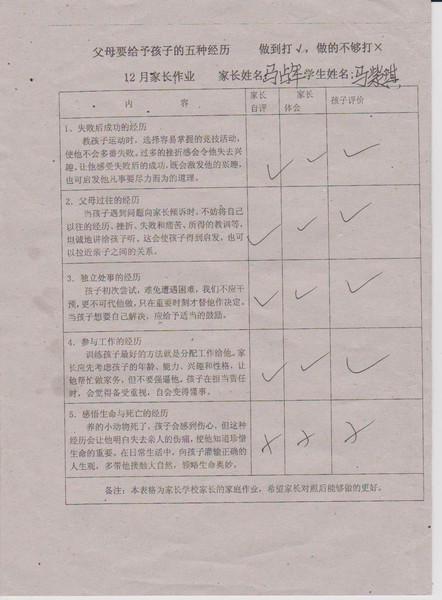 父母要给予孩子的五种经历 做到打√，做的不够打×
12月家长作业 家长姓名马占军学生姓名:马紫琪
内 容 家长自评 家长体会 孩子评价
1、失败后成功的经历 ✓ ✓ ✓
教孩子运动时，选择容易掌握的竞技活动，
使他不会多番失败。过多的挫折感会令他失去兴
趣。让他感受失败后的成功，既会激发他的兴趣，
也可启发他凡事要尽力而为的道理。
2、父母过往的经历 ✓ ✓ ✓
当孩子遇到问题向家长倾诉时，不妨将自己
以往的经历、挫折、失败和痛苦、所得的教训等，
坦诚地讲给孩子听。这会使孩子得到启发，也可
以拉近亲子之间的关系。
3、独立处事的经历 ✓ ✓ ✓
孩子初次尝试，难免遭遇困难，我们不应干
预，更不可代他做，只在重要时刻才替他作决定。
当孩子想要自己解决，应给予适当的鼓励。
4、参与工作的经历 ✓ ✓ ✓
训练孩子最好的方法就是分配工作给他。家
长应先考虑孩子的年龄、能力、兴趣和性格，让
他帮忙做家务，但不要强逼他。孩子在担当责任
时，会觉得备受重视，自会变得懂事。
5、感悟生命与死亡的经历 × × ×
养的小动物死了，孩子会感到伤心，但这种
经历会让他明白失去亲人的伤痛，使他知道珍惜
生命的重要。在日常生活中，向孩子灌输正确的
人生观，多带他接触大自然，领略生命奥妙。
备注：本表格为家长学校家长的家庭作业，希望家长对照后能够做的更好。